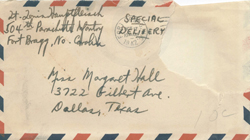 Lt. Louis Hauptfleisch
504th Parachute Infantry
Fort Bragg, No. Carolina
SPECIAL
DELIVERY
Miss Margaret Hall
3722 Gilbert Ave.
Dallas, Texas